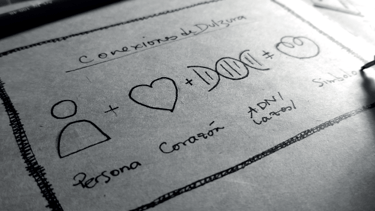 Conexiones de Dulzura
+ + =
Persona Corazón ADN/
Lazos/